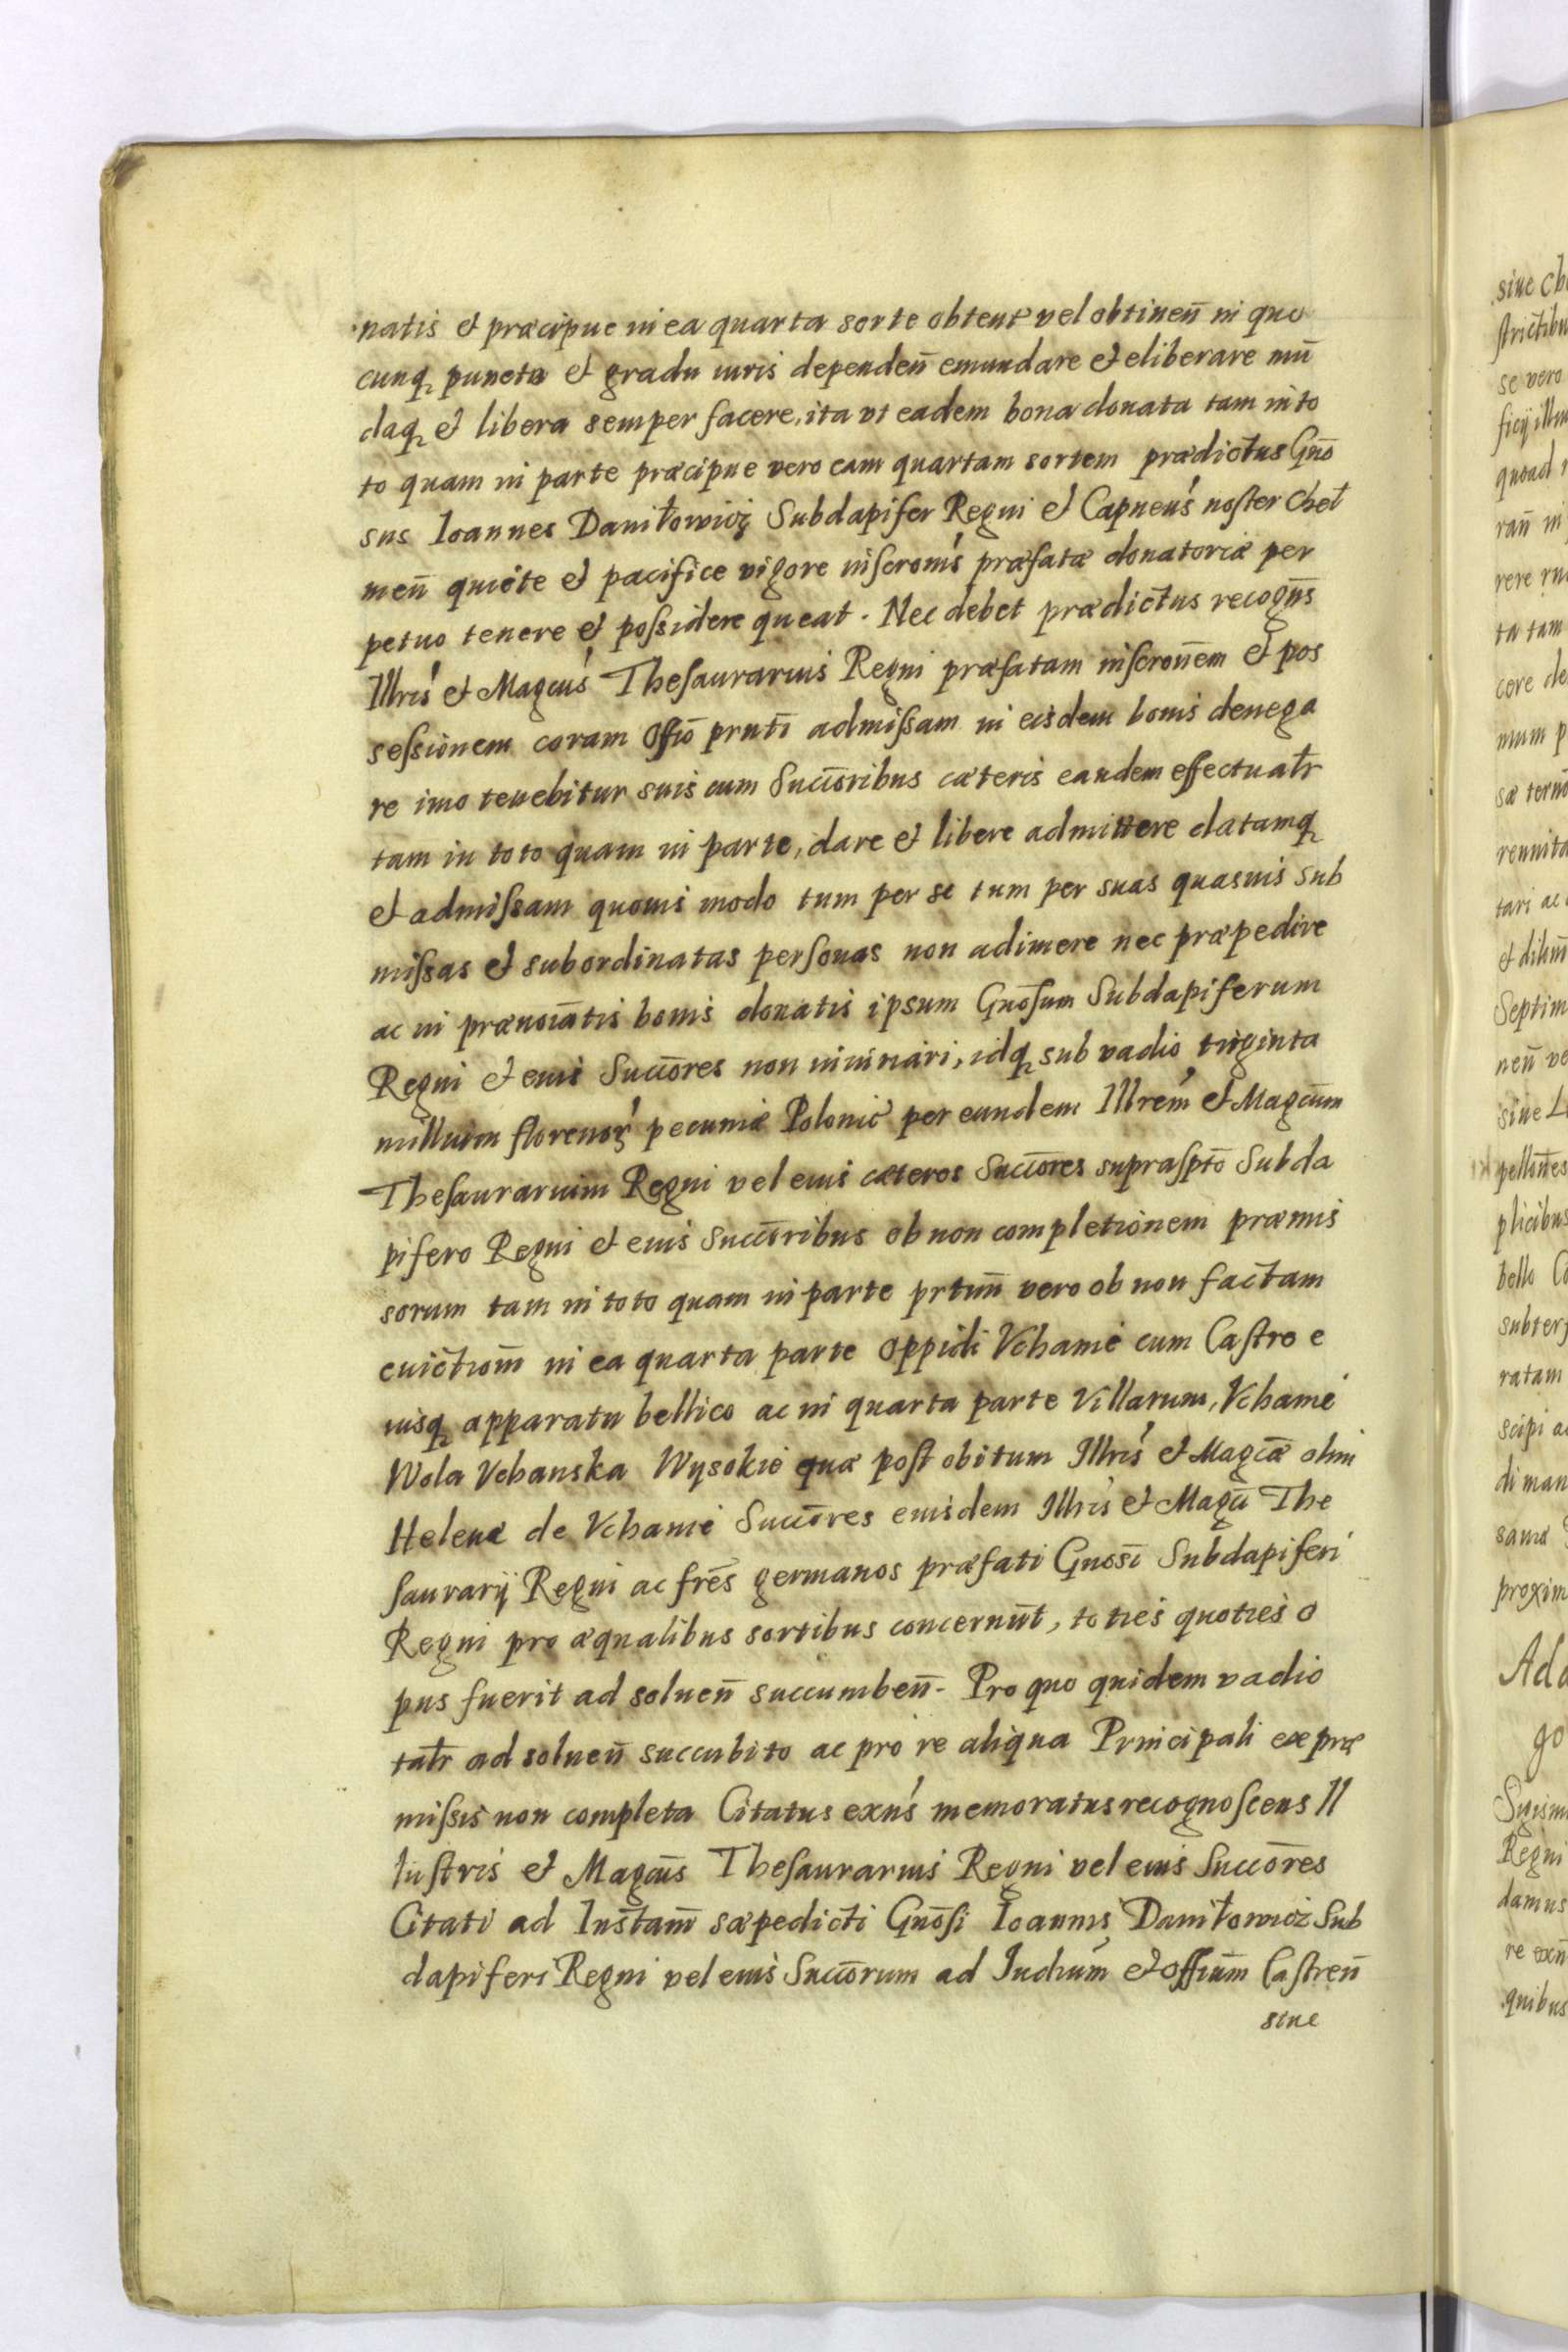 natis et præcipue in ea quarta sorte obtent vel obtinen̄ in quo
cunq puncto et gradu iuris dependen̄ emundare et eliberare mū
daq et libera semper facere, ita vt eadem bona donata tam in to
to quam in parte præcipue vero eam quartam sortem prædictus Gn̄o
sus Ioannes Daniłowicz Subdapifer Regni et Capneus noster Cheł
men̄ quiete et pacifice vigore inscronis præfatæ donatoriæ per
petuo tenere et possidere queat. Nec debet prædictus recogn̄s
Illris et Magcus Thesaurarius Regni præfatam inscron̄em et pos
sessionem coram Offio prnti admissam in eisdem bonis denega
re imo tenebitur suis cum Succōribus cæteris eandem effectualr
tam in toto quam in parte, dare et libere admittere datamq
et admissam quouis modo tum per se tum per suas quasuis sub
missas et subordinatas personas non adimere nec præpedire
ac in prænoīatis bonis donatis ipsum Gnōsum Subdapiferum
Regni et eius Succōres non iniuriari, idq sub vadio triginta
millium florenor pecuniæ Polonic per eundem Illrem et Magcūm
Thesaurarium Regni vel eius cæteros Succōres supraspto Subda
pifero Regni et eius Succōribus ob non completionem præmis
sorum tam in toto quam in parte prtim̄ vero ob non factam
euictionm̄ in ea quarta parte oppidi Vchanie cum Castro e
iusq apparatu bellico ac in quarta parte Villarum, Vchanie
Wola Vchanska Wysokie quæ post obitum Illris et Magcæ olim
Helenæ de Vchanie Succōres eiusdem Illris et Magci The
saurarij Regni ac frēs germanos præfati Gnosi Subdapiferi
Regni pro æqualibus sortibus concernūt, toties quoties o
pus fuerit ad soluen̄ succumben̄. Pro quo quidem vadio
talr ad soluen̄ succubito ac pro re aliqua Principali ex præ
missis non completa Citatus exn̄s memoratus recognoscens Il
lustris et Magcūs Thesaurarius Regni vel eius Succōres
Citati ad Instam̄ sæpedicti Gnōsi Ioannis Daniłowicz Sub
dapiferi Regni vel eius Succōrum ad Iudium et offium Castren̄
siue